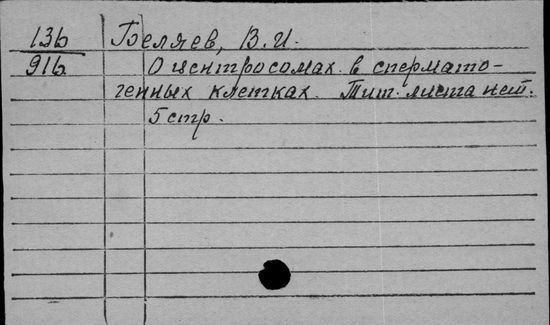 13b Беляев, В.И.
91b О центросомах в спермато-
генных клетках. Тит. листа нет.
5 стр.